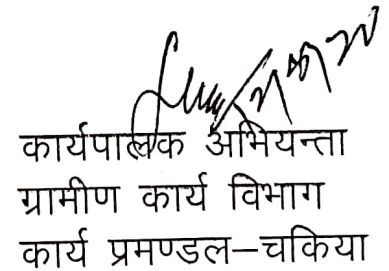 कार्यपालक अभियन्ता
ग्रामीण कार्य विभाग
कार्य प्रमण्डल-चकिया